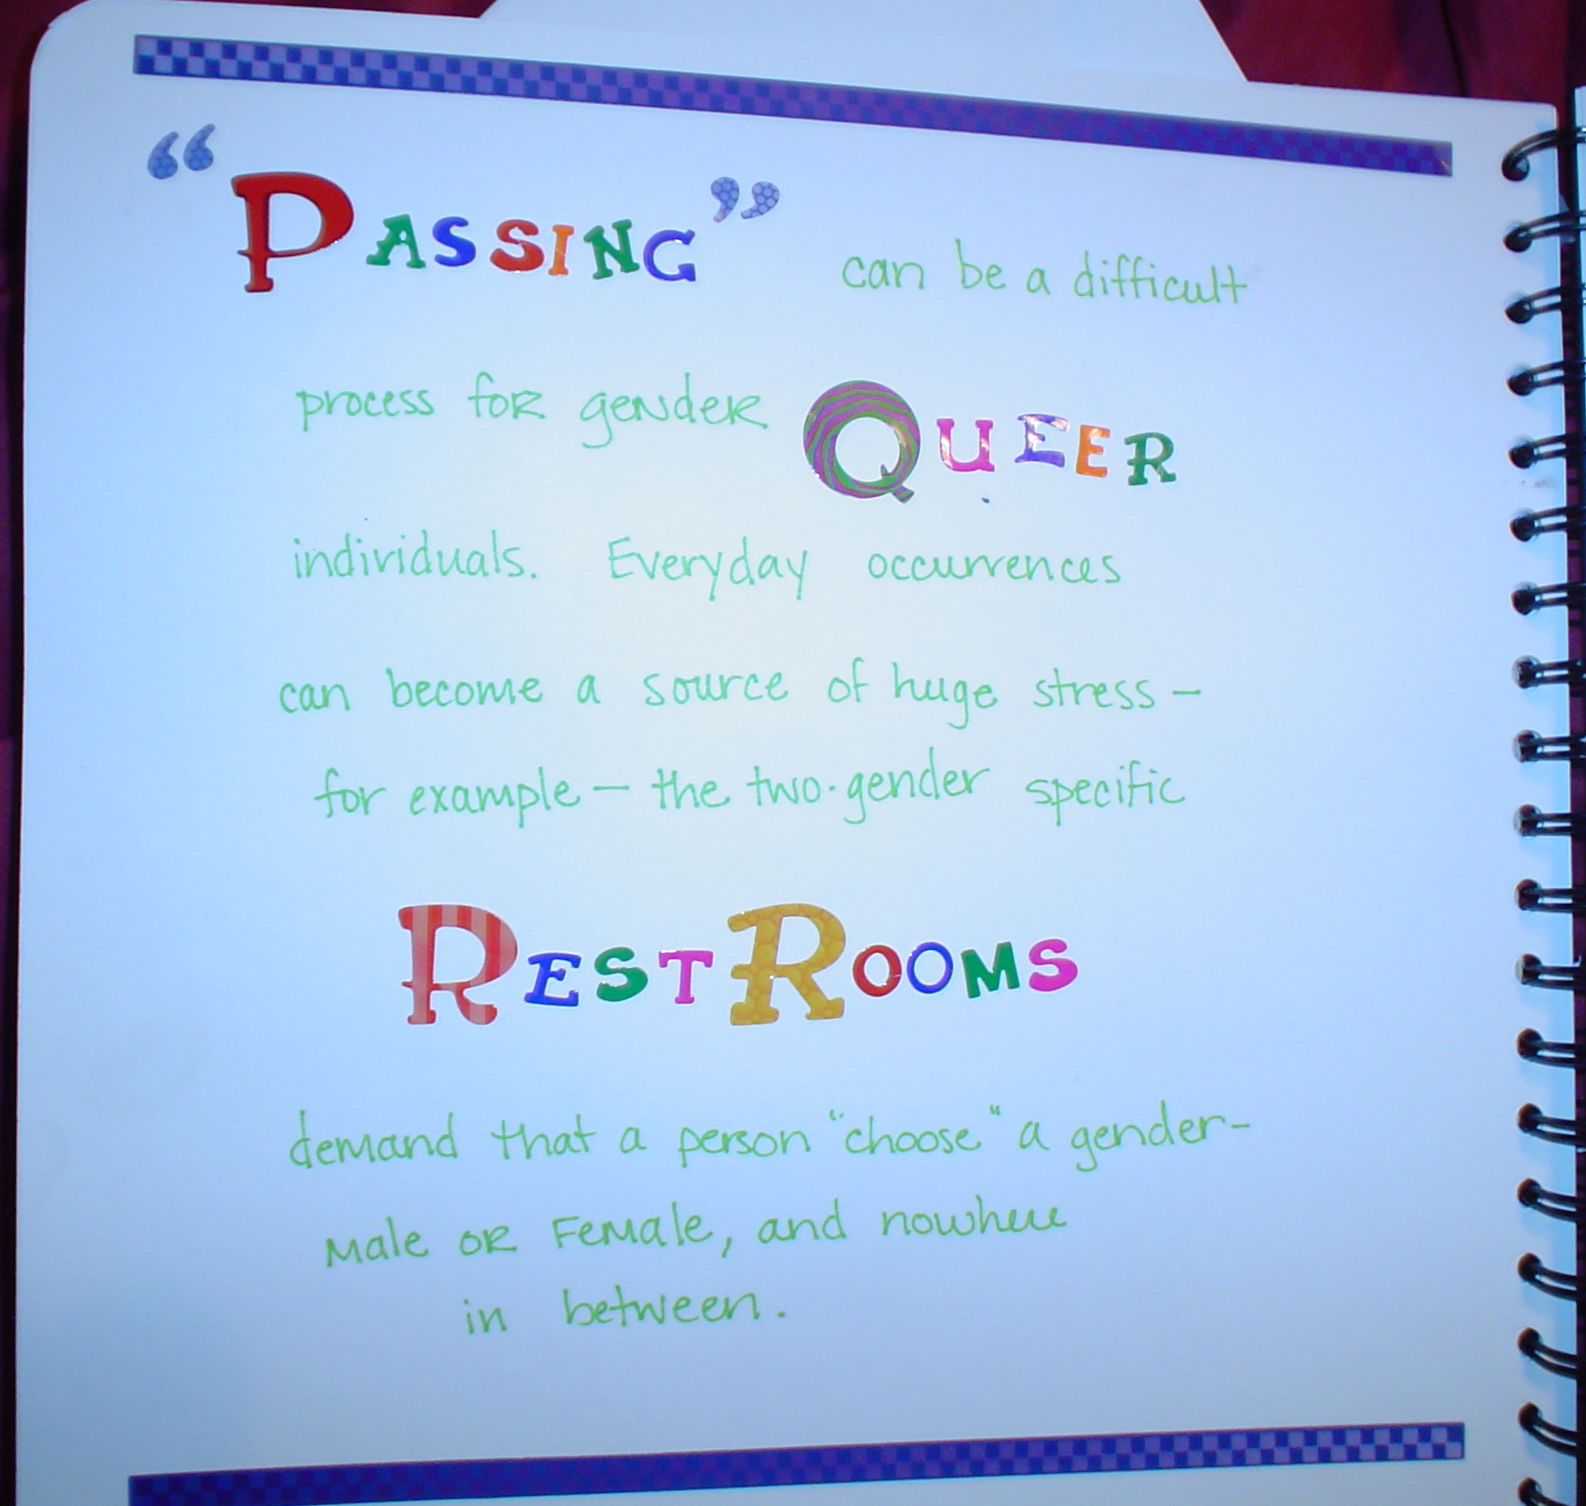 “PASSING” can be a difficult
process for gender QUEER
individuals. Everyday occurrences
can become a source of huge stress –
for example – the two-gender specific
RESTROOMS
demand that a person "choose" a gender –
male or Female, and nowhere
in between.